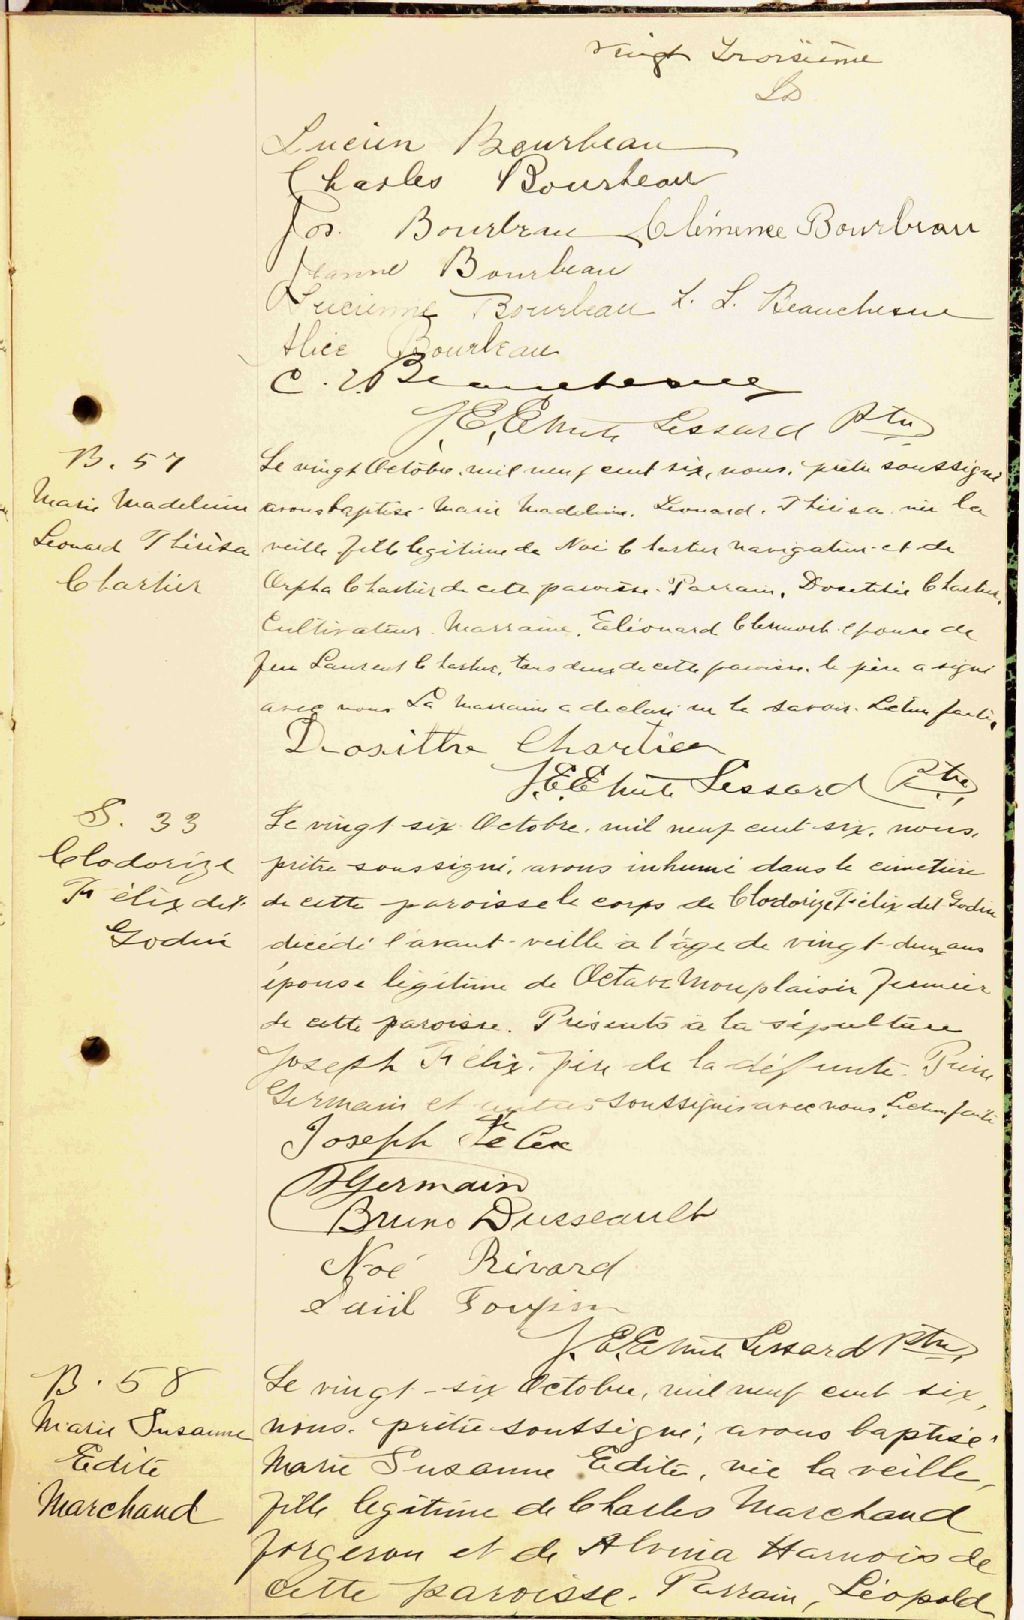 vingt troisième
Ls
Lucien Bourbeau
Charles Bourbeau
Jos. Bourbeau Clémence Bourbeau
Jeanne Bourbeau
Lucienne Bourbeau L. L. Beauchesne
Alice Bourbeau
C. Beauchesne
J. E. Emile Lessard Ptre
B. 57
Marie Madeleine
Léonard Thérèsa
Chartier
Le vingt Octobre, mil neuf cent six, nous, prêtre soussigné
avons baptisé Marie Madeleine, Léonard, Thérèsa née la
veille fille légitime de Noé Chartier navigateur et de
Orpha Chartier de cette paroisse. Parrain, Dosithée Chartier,
Cultivateur. Marraine, Eléonard épouse de
feu Laurent Chartier, tous deux de cette paroisse. le père a signé
avec nous La marraine a déclaré ne le savoir. Lecture faite.
Dosithe Chartier
J. E. Emile Lessard Ptre,
S. 33
Clodorize
Félix dit
Godin
Le vingt six Octobre, mil neuf cent six, nous,
prêtre soussigné, avons inhumé dans le cimetière
de cette paroisse le corps de Clodorize Félix dit Godin
décédé l'avant-veille à l'âge de vingt-deux ans
épouse légitime de Octave Monplaisir fermier
de cette paroisse. Présents à la sépulture
Joseph Félix, père de la défunte.
Germain et autres soussignés avec nous. Lecture faite
Joseph Félix
Germain
Bruno Dusseault
Noé Rivard
J. E. Emile Lessard Ptre,
B. 58
Marie Susanne
Edite
Marchand
Le vingt-six Octobre, mil neuf cent six,
nous, prêtre soussigné, avons baptisé
Marie Susanne Edite, née la veille,
fille légitime de Charles Marchand
forgeron et de Alvina Harnois de
cette paroisse. Parrain, Léopold